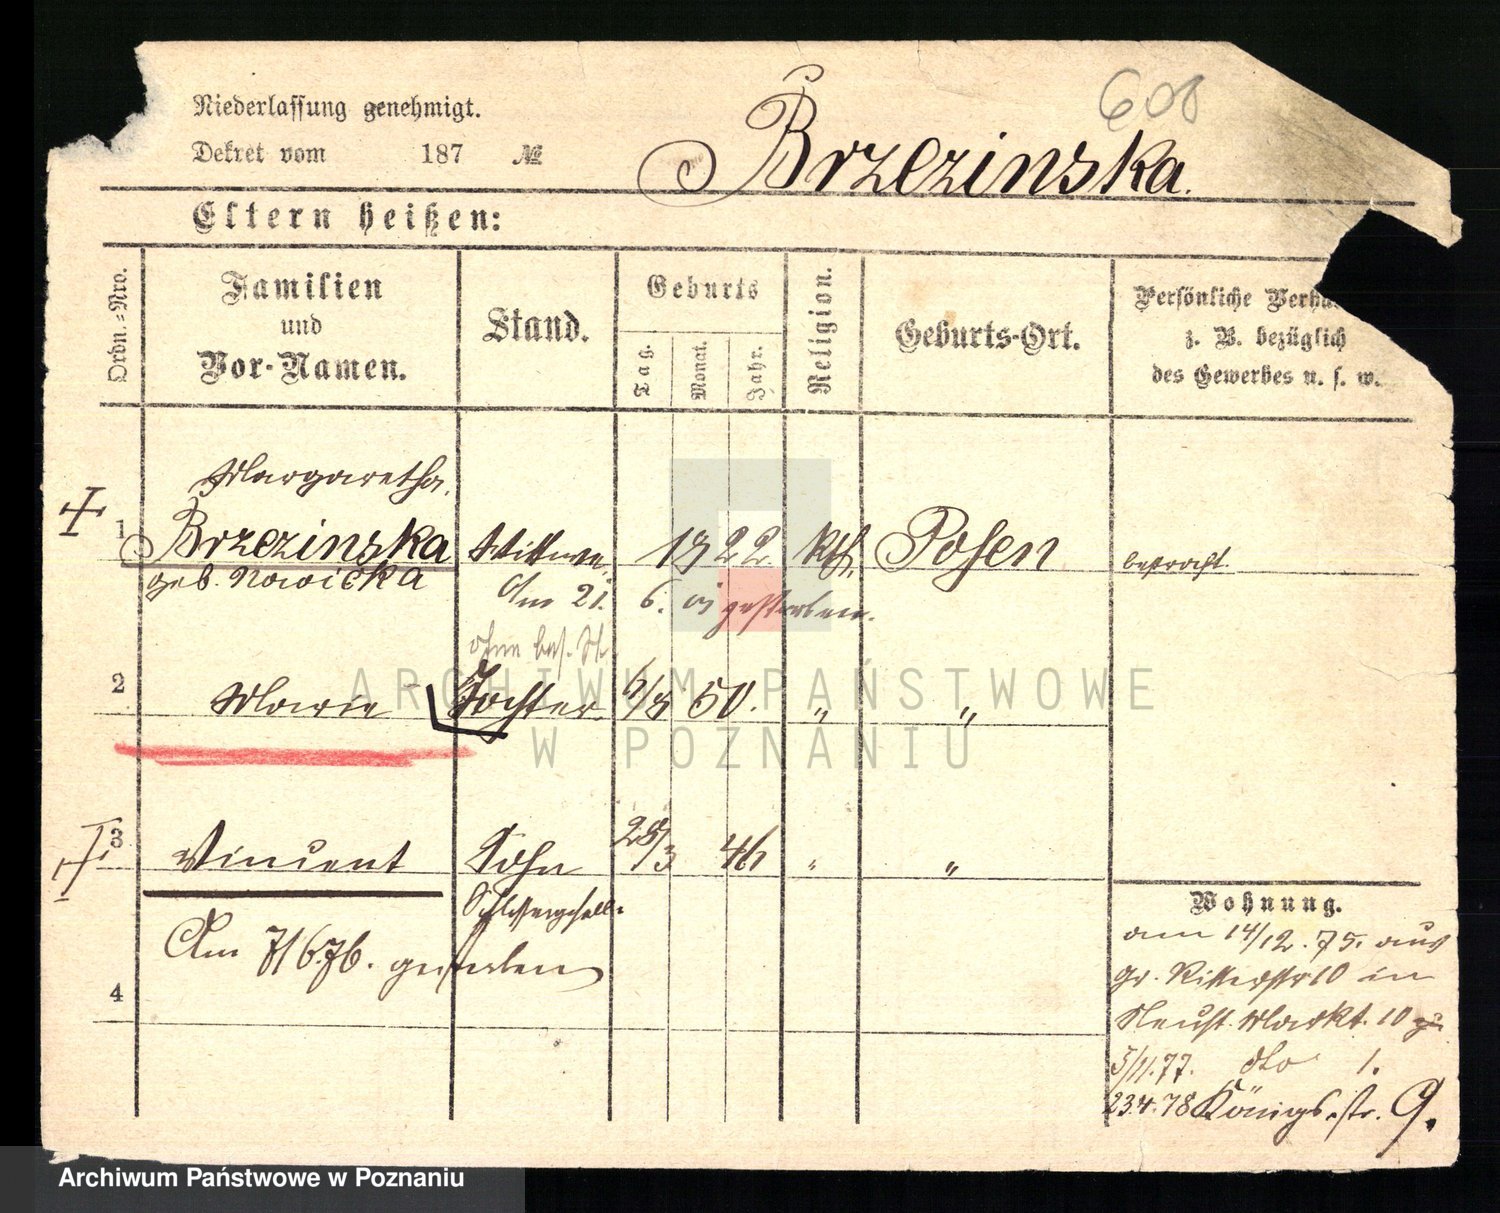 608
Niederlassung genehmigt.
Dekret vom 187 №
Brzezinska.
Eltern heißen:
Ordn.-Nro.
Familien
und
Vor-Namen.
Stand.
Geburts
Tag.
Monat.
Jahr.
Religion.
Geburts-Ort.
Persönliche Verhä
z. B. bezüglich
des Gewerbes u. s. w.
Margaretha
1 Brzezinska Wittwe 1822 kth. Posen bestraft.
geb. Nowicka
Am 21. 6. gestorben.
ohne bes. St.
2 Marie Tochter 50. " "
3 Vincent Sohn 28/3 46 " "
Am 7/6 76. gestorben
4
Wohnung.
am 14/12. 75. aus
gr. Ritterstr 10 in
Neust. Markt. 10
5/11. 77. dto 1.
23.4.78 Königs-str. 9.
ARCHIWUM PAŃSTWOWE
W POZNANIU
Archiwum Państwowe w Poznaniu